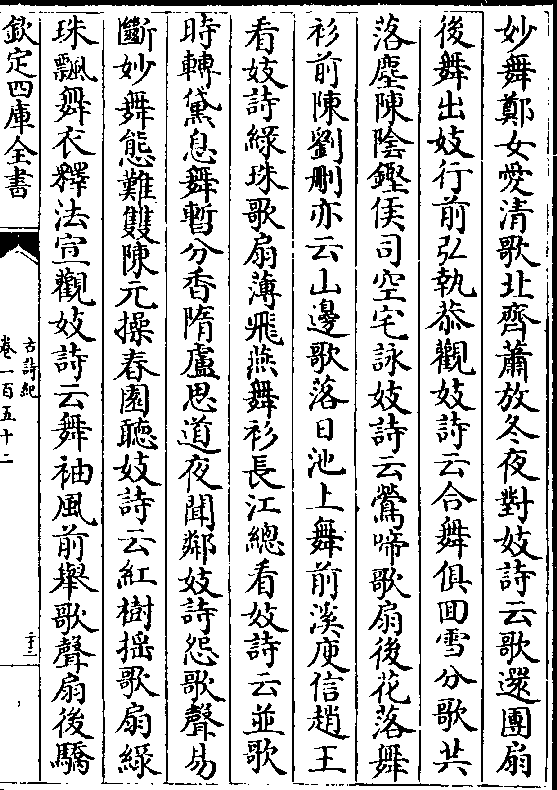 妙舞鄭女愛清歌北齊蕭放冬夜對妓詩云歌還團扇
後舞出妓行前弘執恭觀妓詩云合舞俱回雪分歌共
落塵陳陰鏗侯司空宅詠妓詩云鶯啼歌扇後花落舞
衫前陳劉刪亦云山邊歌落日池上舞前溪庾信趙王
看妓詩綠珠歌扇薄飛燕舞衫長江總看妓詩云並歌
時轉黛息舞暫分香隋盧思道夜聞鄰妓詩怨歌聲易
斷妙舞態難雙陳元操春園聽妓詩云紅樹搖歌扇綠
珠飄舞衣釋法宣觀妓詩云舞袖風前舉歌聲扇後驕
欽定四庫全書
古詩紀
卷一百五十二